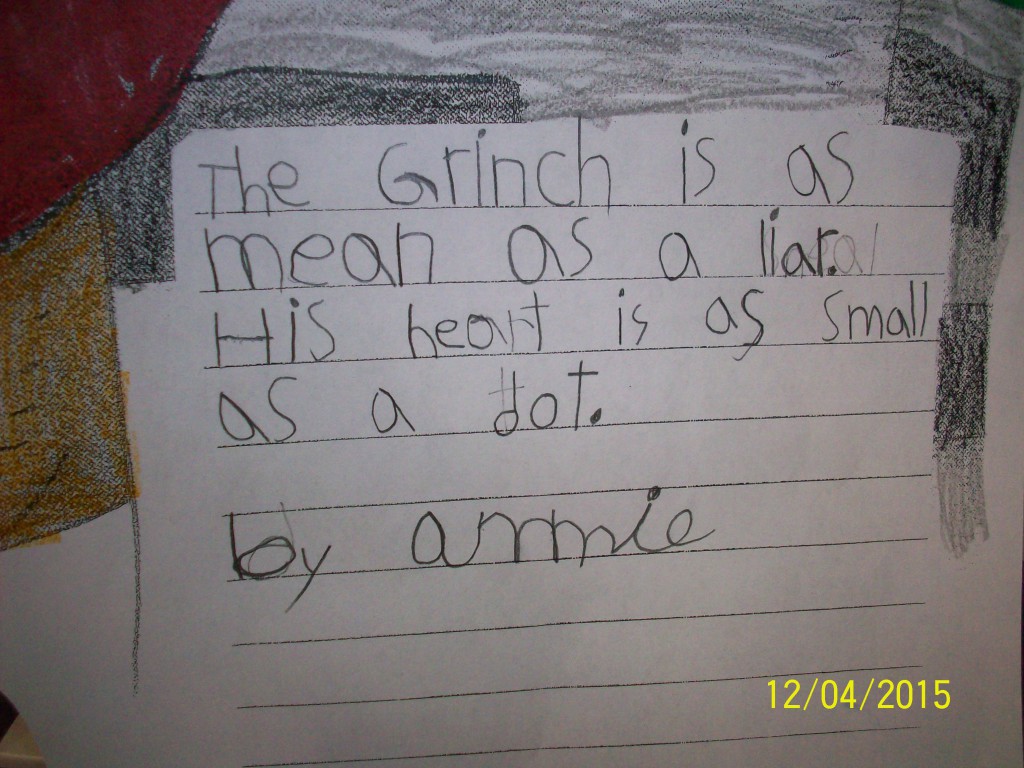 The Grinch is as
mean as a liar.
His heart is as small
as a dot.
by annie
12/04/2015